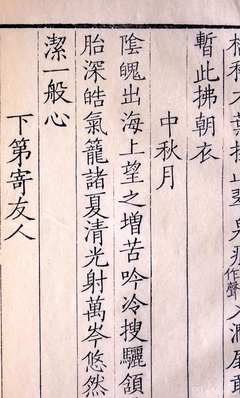 作聲
暫此拂朝衣
中秋月
陰魄出海上望之增苦吟冷搜驪頷
胎深皓氣籠諸夏清光射萬岑悠然
潔一般心
下第寄友人